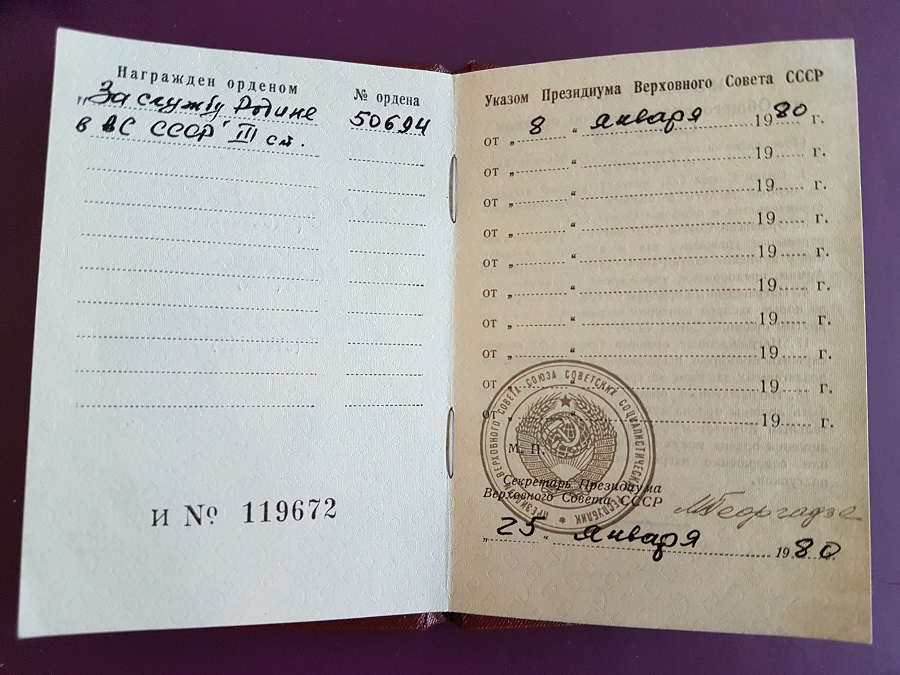 Награжден орденом
№ ордена
„За службу Родине
в ВС СССР" III ст.
50694
И № 119672
Указом Президиума Верховного Совета СССР
от „ 8 " января 1980 г.
от „ " 19 г.
от „ " 19 г.
от „ " 19 г.
от „ " 19 г.
от „ " 19 г.
от „ " 19 г.
от „ " 19 г.
от „ " 19 г.
от „ " 19 г.
М. П.
ПРЕЗИДИУМ ВЕРХОВНОГО СОВЕТА СОЮЗА СОВЕТСКИХ СОЦИАЛИСТИЧЕСКИХ РЕСПУБЛИК
Секретарь Президиума
Верховного Совета СССР
МГеоргадзе
„ 25 " января 1980